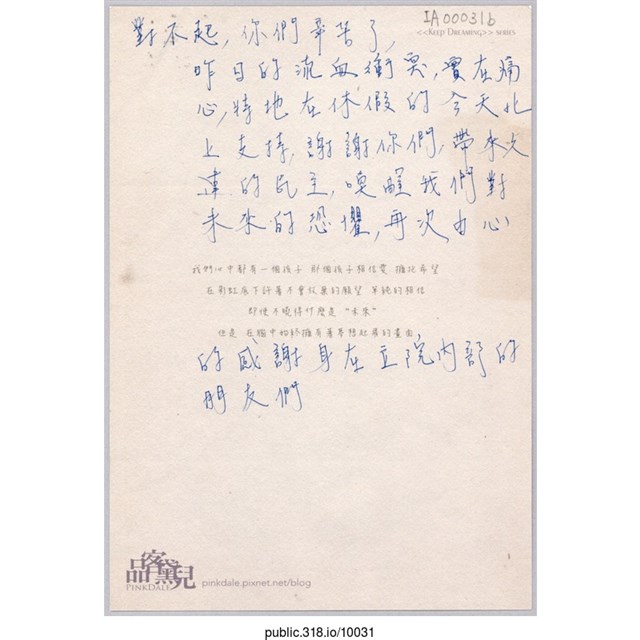 IA00031b
<<KEEP DREAMING>> SERIES
對不起,你們辛苦了,
昨日的流血衝突,實在痛
心,特地在休假的今天北
上支持,謝謝你們,帶來久
違的民主,喚醒我們對
未來的恐懼,再次由心
我們心中都有一個孩子 那個孩子相信愛 擁抱希望
在彩虹底下許著不會放棄的願望 單純的相信
即使不曉得什麼是“未來”
但是 在腦中始終擁有著夢想起飛的畫面
的感謝身在立院內部的
朋友們
品客黛兒
PINKDALE
pinkdale.pixnet.net/blog
public.318.io/10031